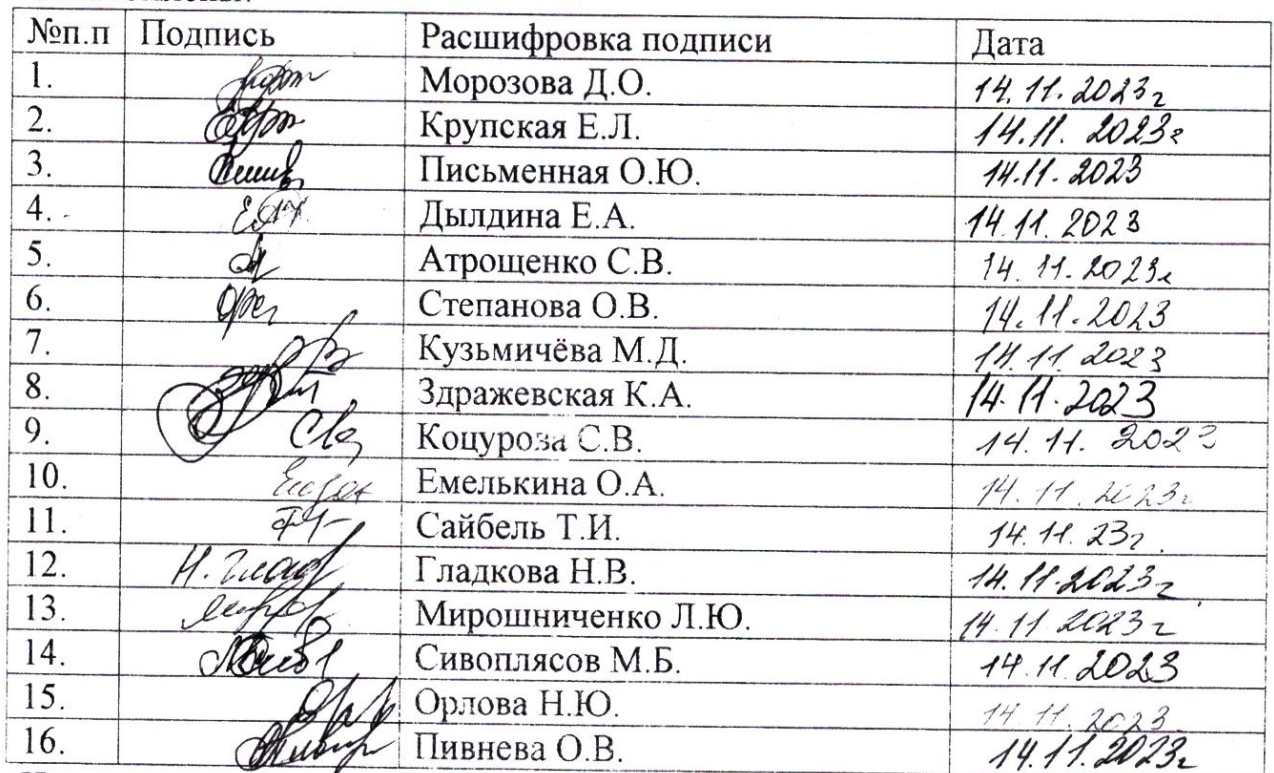 №п.п Подпись Расшифровка подписи Дата
1. Морозова Д.О. 14.11.2023г
2. Крупская Е.Л. 14.11.2023г
3. Письменная О.Ю. 14.11.2023
4. Дылдина Е.А. 14.11.2023
5. Атрощенко С.В. 14.11.2023г
6. Степанова О.В. 14.11.2023
7. Кузьмичёва М.Д. 14.11.2023
8. Здражевская К.А. 14.11.2023
9. Коцуроза С.В. 14.11.2023
10. Емелькина О.А. 14.11.2023г
11. Сайбель Т.И. 14.11.23г.
12. Н. Глад Гладкова Н.В. 14.11.2023г
13. Мирошниченко Л.Ю. 14.11.2023г
14. Сивоплясов М.Б. 14.11.2023
15. Орлова Н.Ю. 14.11.2023
16. Пивнева О.В. 14.11.2023г